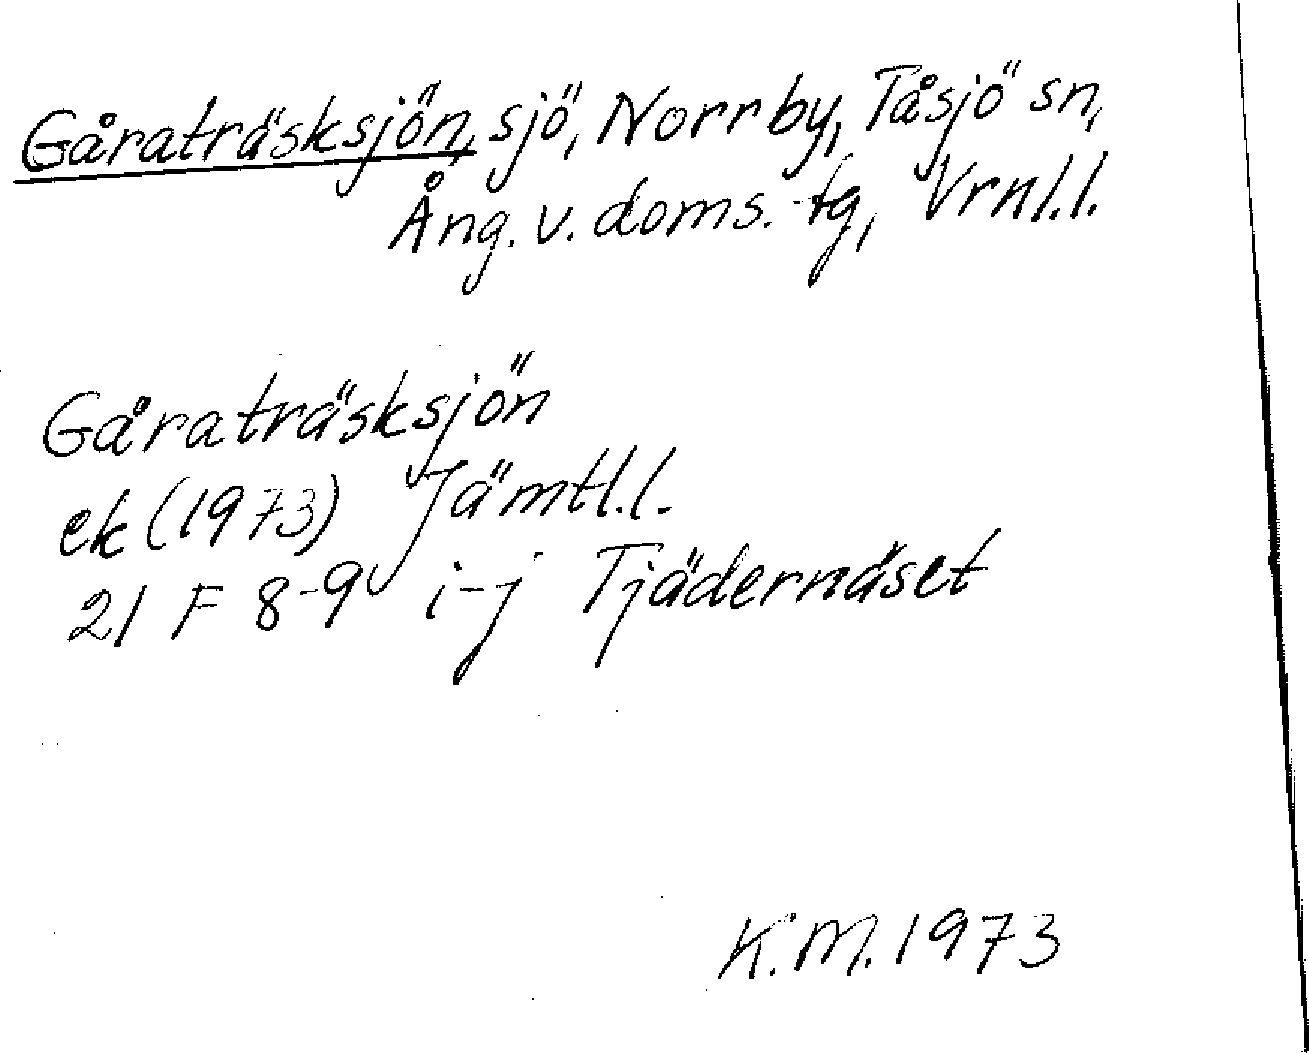 Gåraträsksjön, sjö, Norrby, Tåsjö sn,
Ång. v. doms.-tg, Vrnl.l.
Gåraträsksjön
ek (1973) Jämtl.l.
21 F 8-9 i-j Tjädernäset
K.M. 1973